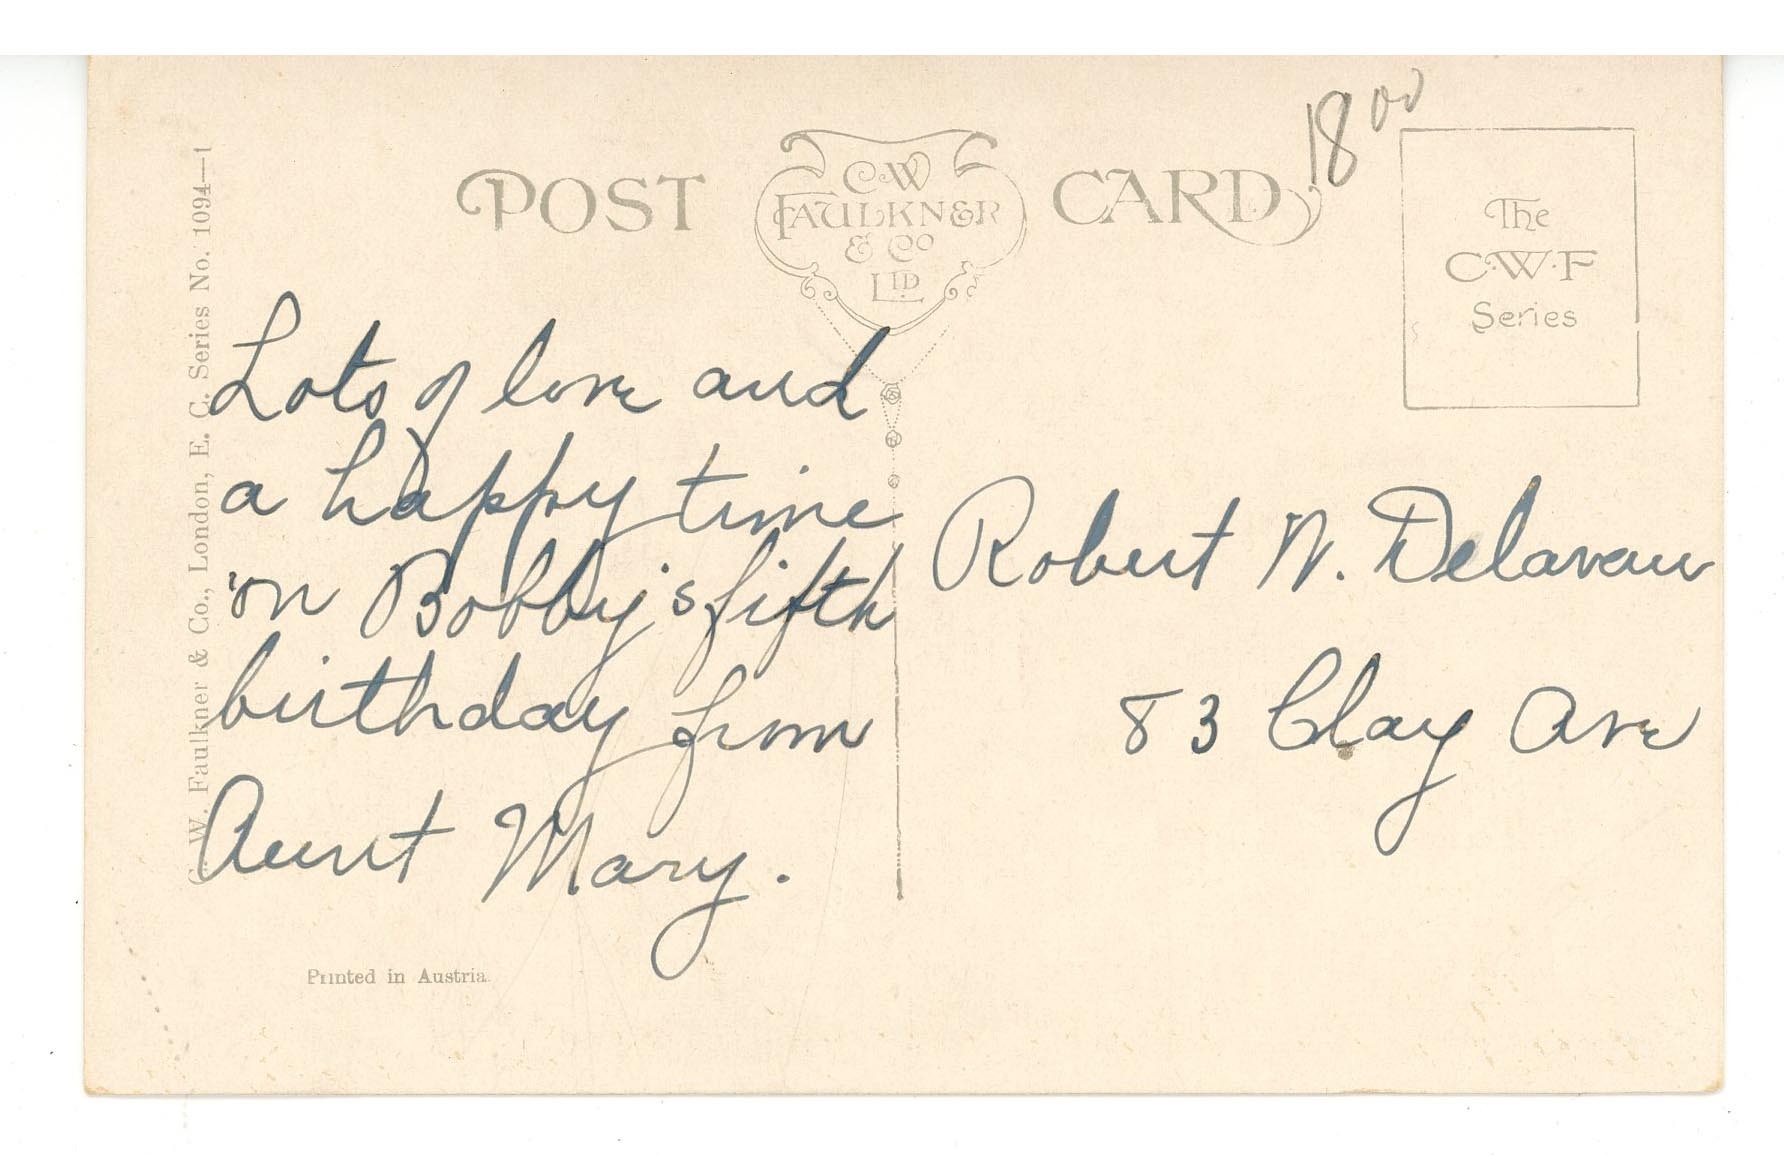 18 00
POST CARD
C W
FAULKNER
& Co
LTD.
The
C·W·F
Series
C. W. Faulkner & Co., London, E. C. Series No. 1094—1
Lots of love and
a happy time
on Bobby's fifth
birthday from
Aunt Mary.
Robert N. Delavau
83 Clay Ave
Printed in Austria.